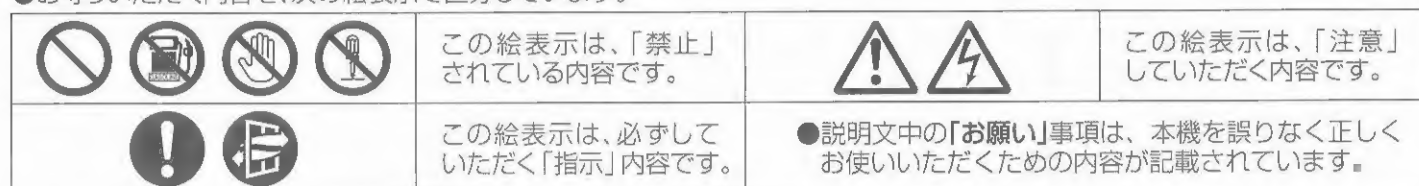 ●お守りいただく内容を、次の絵表示で区分しています。
この絵表示は、「禁止」
されている内容です。
この絵表示は、「注意」
していただく内容です。
この絵表示は、必ずして
いただく「指示」内容です。
●説明文中の「お願い」事項は、本機を誤りなく正しく
お使いいただくための内容が記載されています。